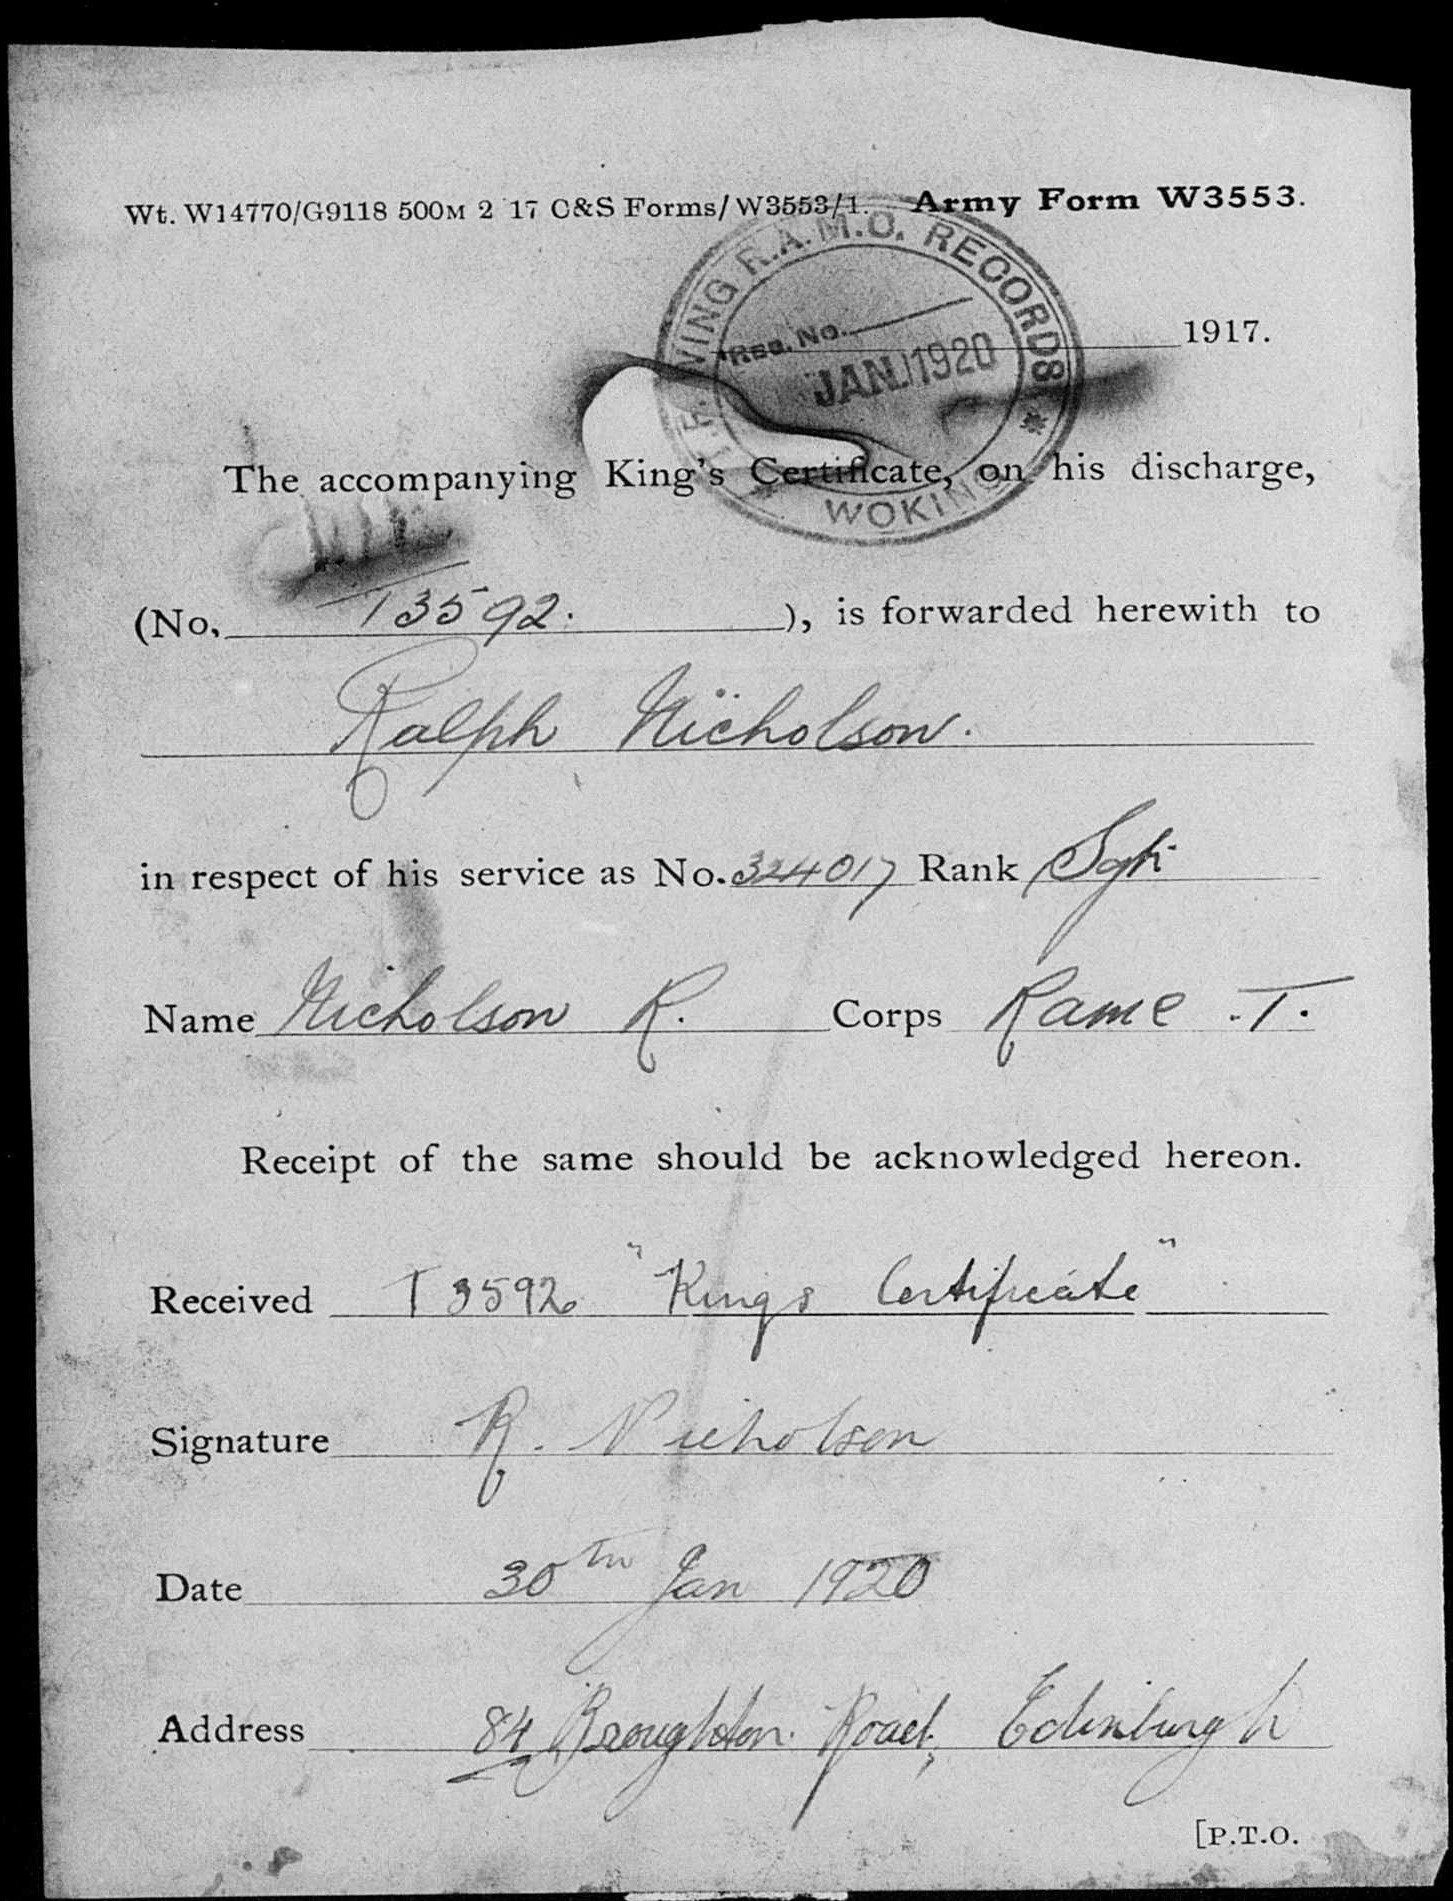 Wt. W14770/G9118 500M 2 17 C&S Forms/W3553/1. Army Form W3553.
VING R.A.M.C. RECORDS
Reg. No.
JAN 1920
WOKING
1917.
The accompanying King's Certificate, on his discharge,
(No. T3592. ), is forwarded herewith to
Ralph Nicholson.
in respect of his service as No. 324017 Rank Sgt
Name Nicholson R. Corps RAMC .T.
Receipt of the same should be acknowledged hereon.
Received T3592 "Kings Certificate"
Signature R. Nicholson
Date 30th Jan 1920
Address 84 Broughton Road, Edinburgh
[P.T.O.